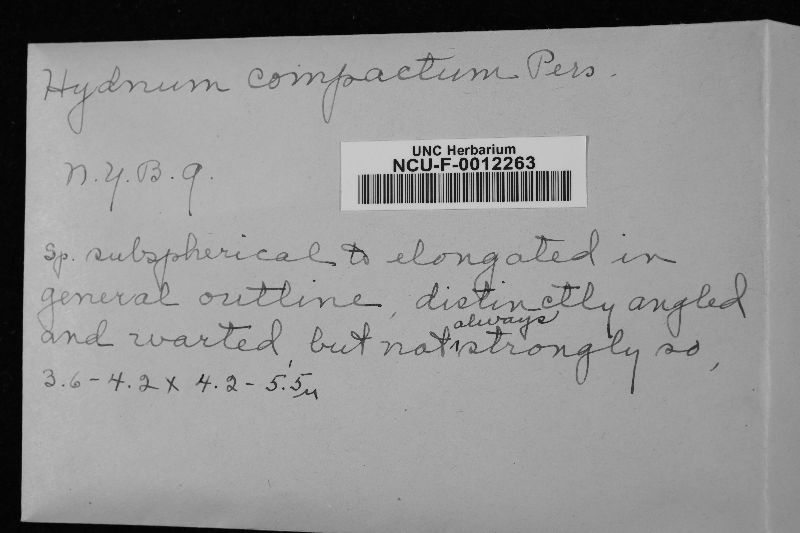 Hydnum compactum Pers.
UNC Herbarium
NCU-F-0012263
N.Y.B.G.
Sp. subspherical to elongated in
general outline, distinctly angled
and warted, but not always strongly so,
3.6-4.2 x 4.2-5.5µ